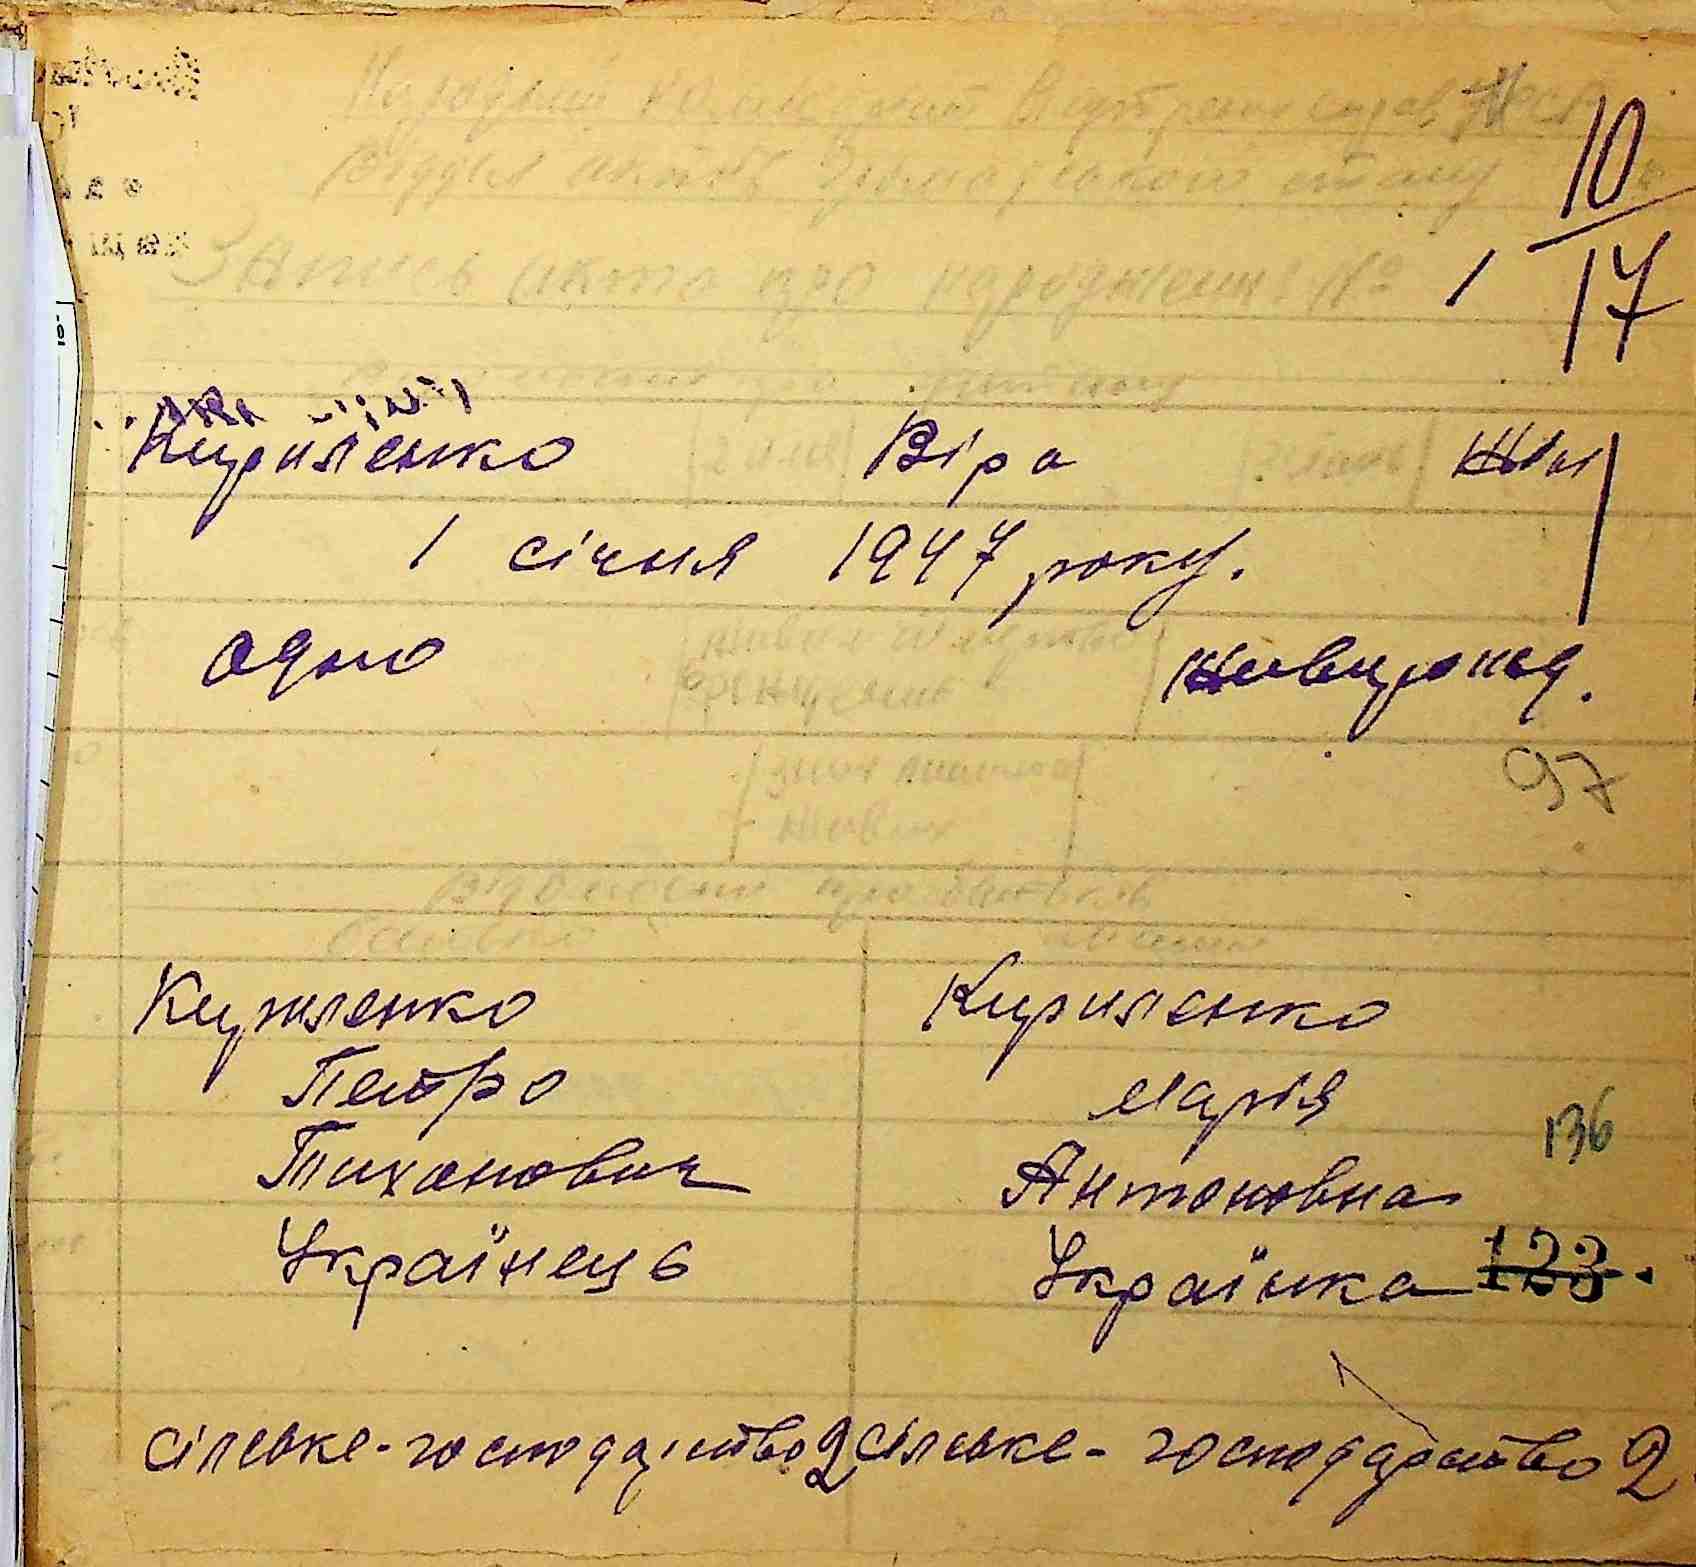 Народний комісаріат Внутрішніх справ УРСР
Відділ актів громадського стану
10
Запись акта про народження №
1
17
Кириленко 2 імя Віра 3 стать Жін
1 січня 1947 року.
одно живим чи мертво живународ.
97
живих
Відомості про батьків
Кириленко Кириленко
Петро Марія
136
Тиханович Антоновна
Українець Українка 123.
сільське-господарство 2 сільське-господарство 2